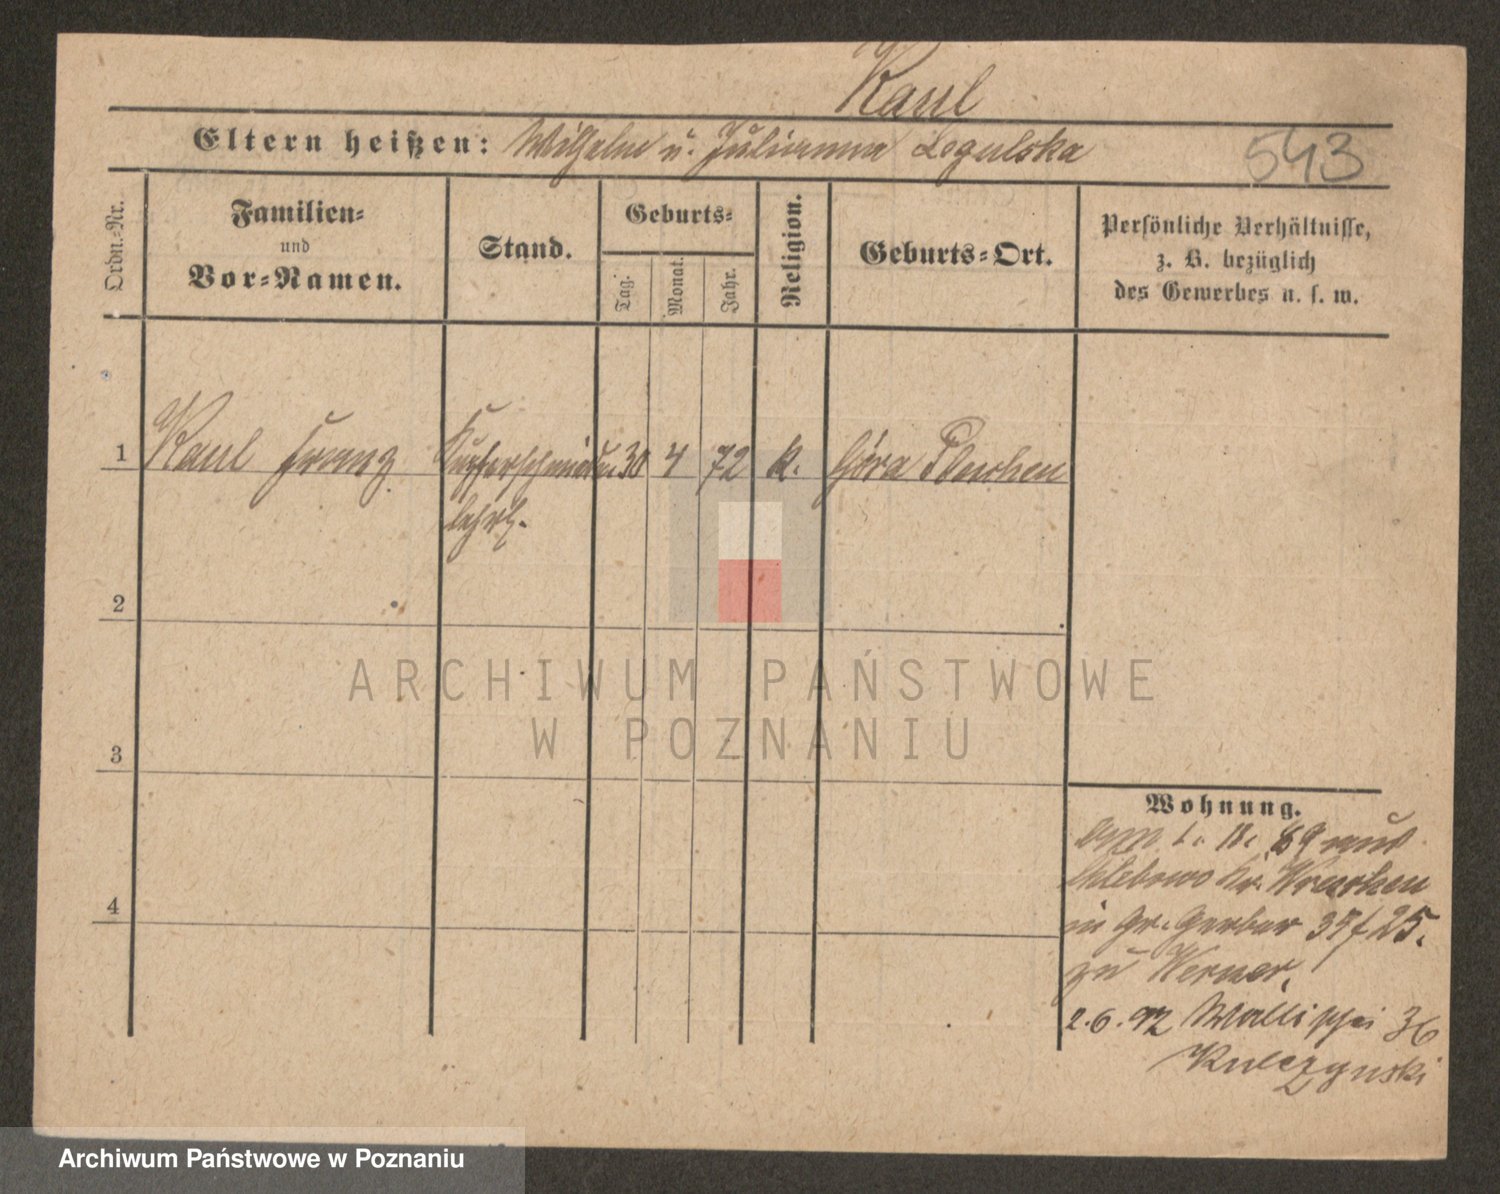 Kaul
Eltern heißen: Wilhelm u. Julianna Logulska
543
Ordn.-Nr.
Familien-
und
Vor-Namen.
Stand.
Geburts-
Tag.
Monat.
Jahr.
Religion.
Geburts-Ort.
Persönliche Verhältnisse,
z. B. bezüglich
des Gewerbes u. s. w.
1 Kaul Franz Kupferschmiede 30 4 72 k. Góra
lehrl.
2
3
4
Wohnung.
1. 11. 89 aus
Chlebowo Kr. Wreschen
in Gr. Gerber 39/25.
zu Werner.
2.6.92 Wallischei 36
Kulczynski
ARCHIWUM PAŃSTWOWE
W POZNANIU
Archiwum Państwowe w Poznaniu